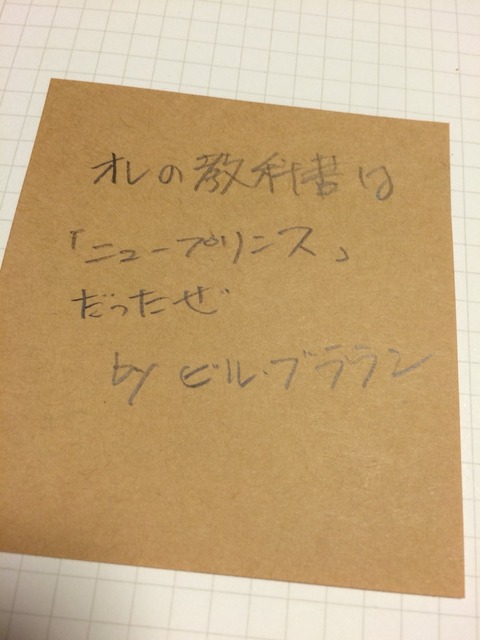 オレの教科書は
「ニュープリンス」
だったぜ
by ビル・ブララン